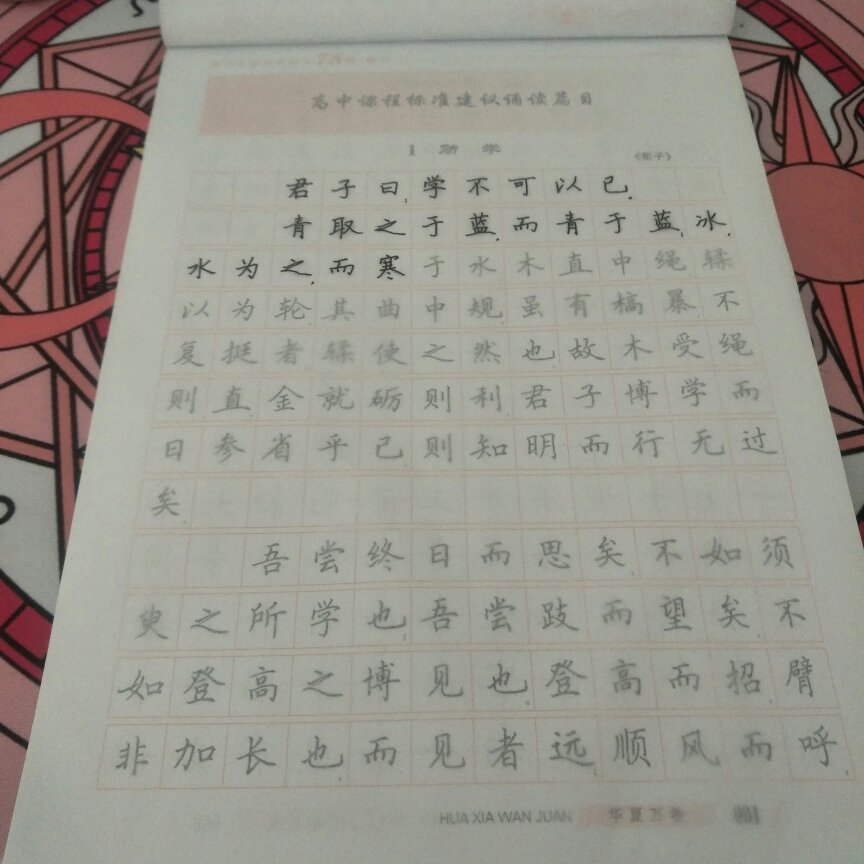 高中课程标准建议诵读篇目
1 劝 学
《荀子》
君子曰,学不可以已.
青取之于蓝,而青于蓝,冰,
水为之,而寒于水木直中绳鞣
以为轮其曲中规虽有槁暴不
复挺者鞣使之然也故木受绳
则直金就砺则利君子博学而
日参省乎己则知明而行无过
矣
吾尝终日而思矣不如须
臾之所学也吾尝跂而望矣不
如登高之博见也登高而招臂
非加长也而见者远顺风而呼
HUA XIA WAN JUAN 华夏万卷 001